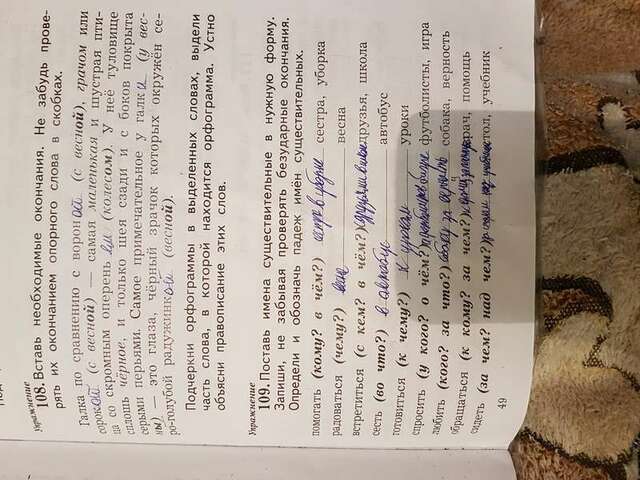 Упражнение
108. Вставь необходимые окончания. Не забудь прове-
рять их окончанием опорного слова в скобках.
Галка по сравнению с ворон ой (с весной), грачом или
сорокой (с весной) — самая маленькая и шустрая пти-
ца со скромным оперень ем (колесом). У неё туловище
сплошь чёрное, и только шея сзади и с боков покрыта
серыми перьями. Самое примечательное у галки (у вес-
ны) — это глаза, чёрный зрачок которых окружён се-
ро-голубой радужинкой (весной).
Подчеркни орфограммы в выделенных словах, выдели
часть слова, в которой находится орфограмма. Устно
объясни правописание этих слов.
Упражнение
109. Поставь имена существительные в нужную форму.
Запиши, не забывая проверять безударные окончания.
Определи и обозначь падеж имён существительных.
помогать (кому? в чём?) сестра, уборка
радоваться (чему?) весне весна
встретиться (с кем? в чём?) друзья, школа
сесть (во что?) в автобус автобус
готовиться (к чему?) к урокам уроки
спросить (у кого? о чём?) футболисты, игра
любить (кого? за что?) собаку за верность собака, верность
обращаться (к кому? за чем?) врач, помощь
сидеть (за чем? над чем?) стол, учебник
49